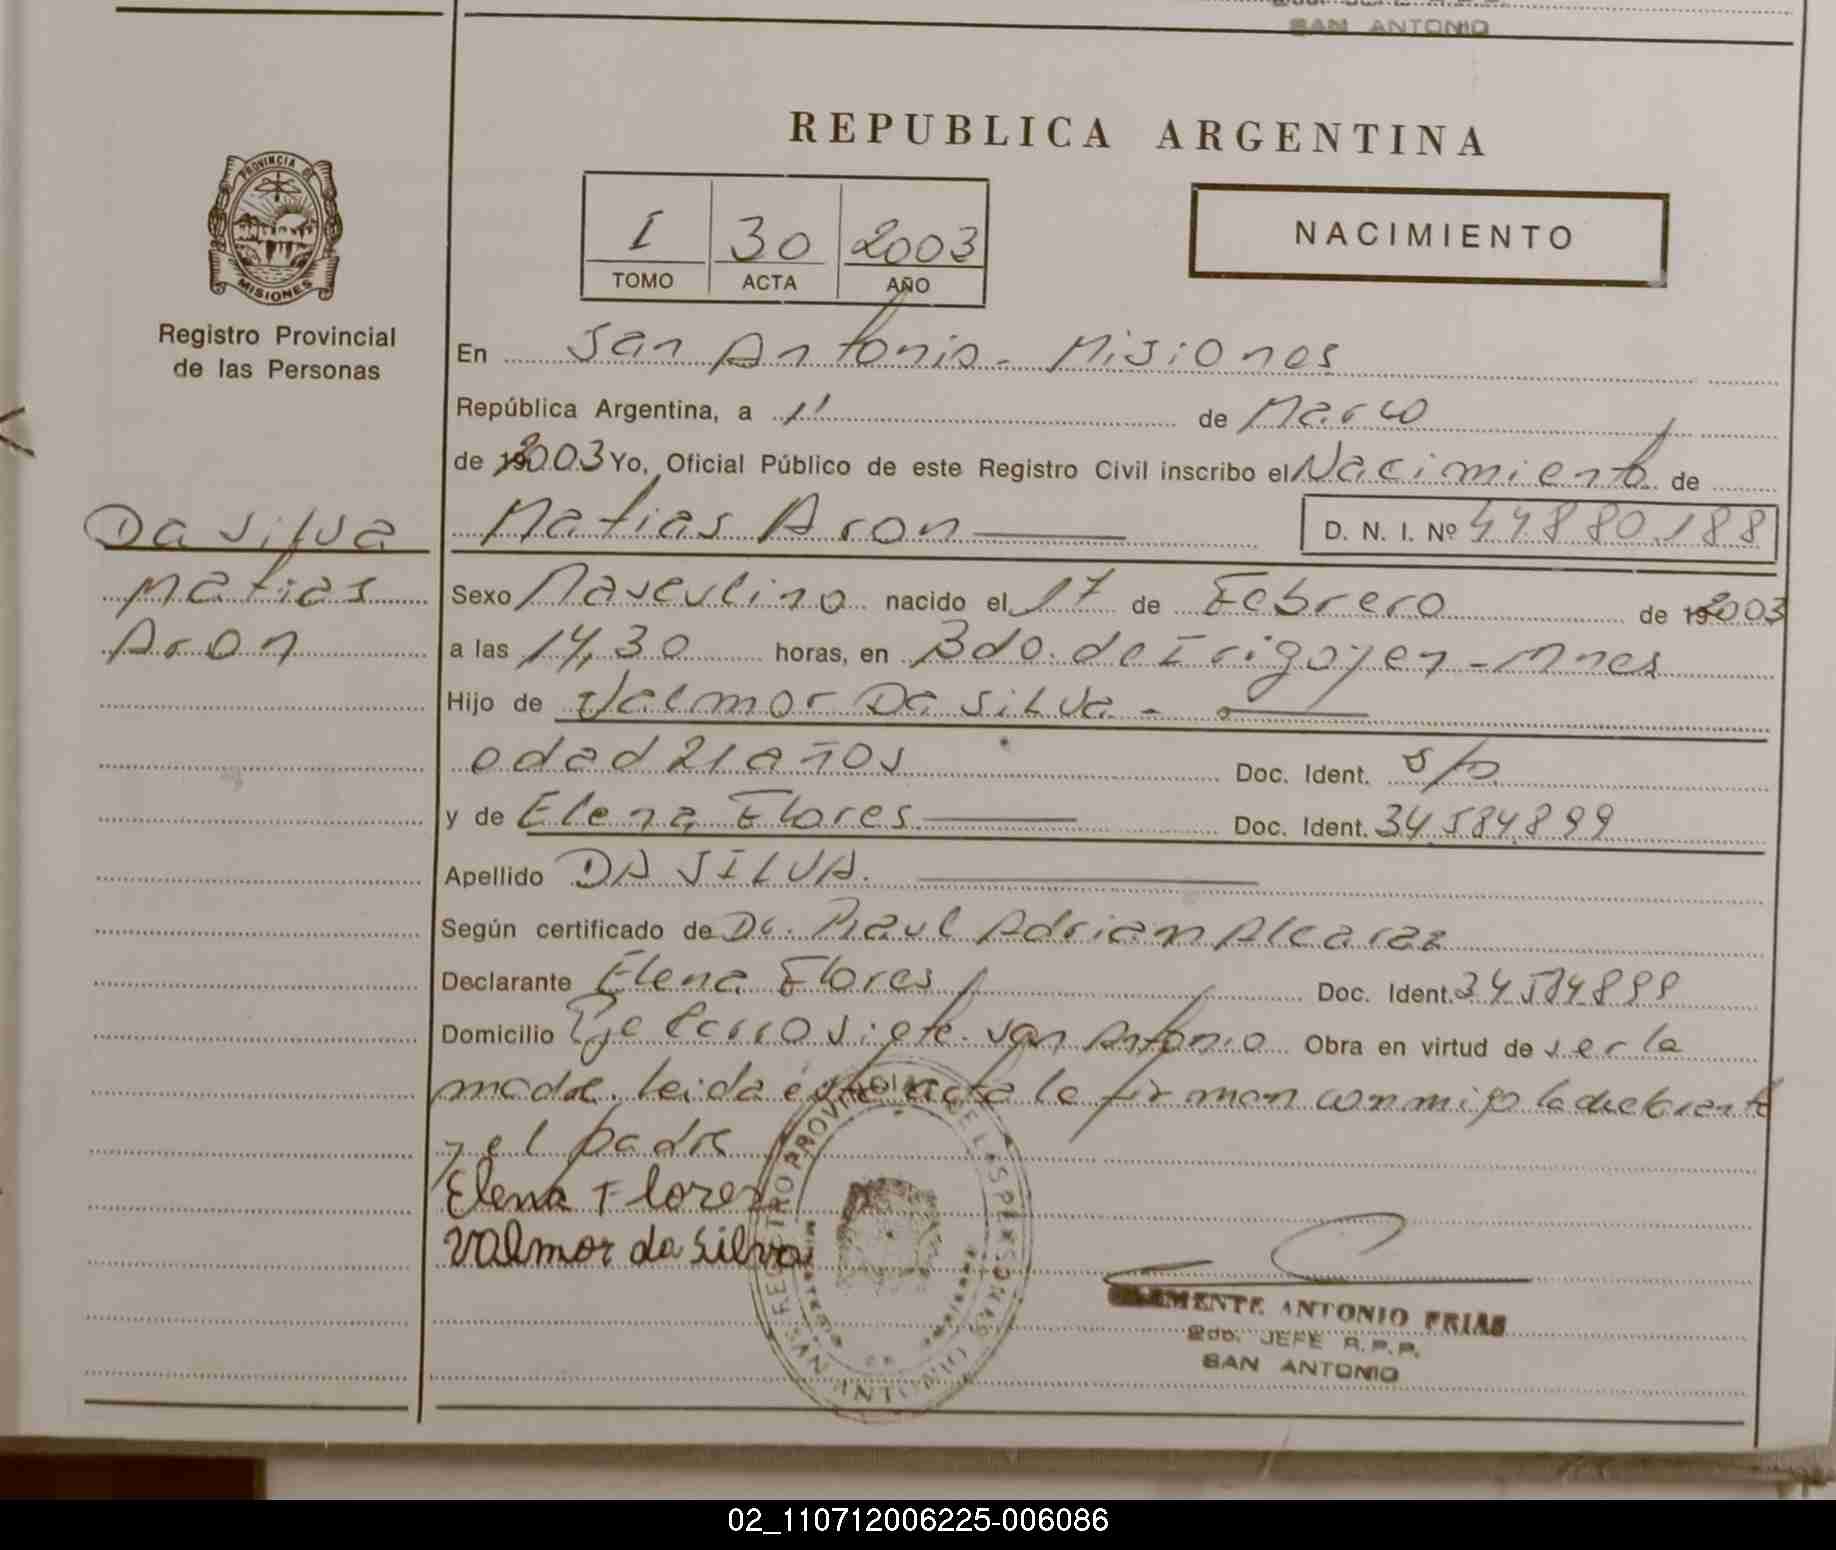 SAN ANTONIO
REPUBLICA ARGENTINA
PROVINCIA DE
MISIONES
Registro Provincial
de las Personas
I 30 2003
TOMO ACTA AÑO
NACIMIENTO
En San Antonio - Misiones
República Argentina, a 11 de Marzo
de 2003 Yo, Oficial Público de este Registro Civil inscribo el Nacimiento de
Da Silva
Matias
Aron
Matias Aron D. N. I. Nº 44880.188
Sexo Masculino nacido el 17 de Febrero de 2003
a las 14,30 horas, en Bdo. de Irigoyen - Mnes
Hijo de Valmor Da Silva -
edad 21 años Doc. Ident. s/D
y de Elena Flores Doc. Ident. 34.584.899
Apellido DA SILVA.
Según certificado de Dr. Raul Adrian Alcaraz
Declarante Elena Flores Doc. Ident. 34584899
Domicilio Pje Cerro Siete. San Antonio Obra en virtud de ser la
madre. leida este acta la firman conmigo la declarante
y el padre
Elena Flores
Valmor da Silva
REGISTRO PROVINCIAL DE LAS PERSONAS
SAN ANTONIO
CLEMENTE ANTONIO FRIAS
2do. JEFE R.P.P.
SAN ANTONIO
02_110712006225-006086